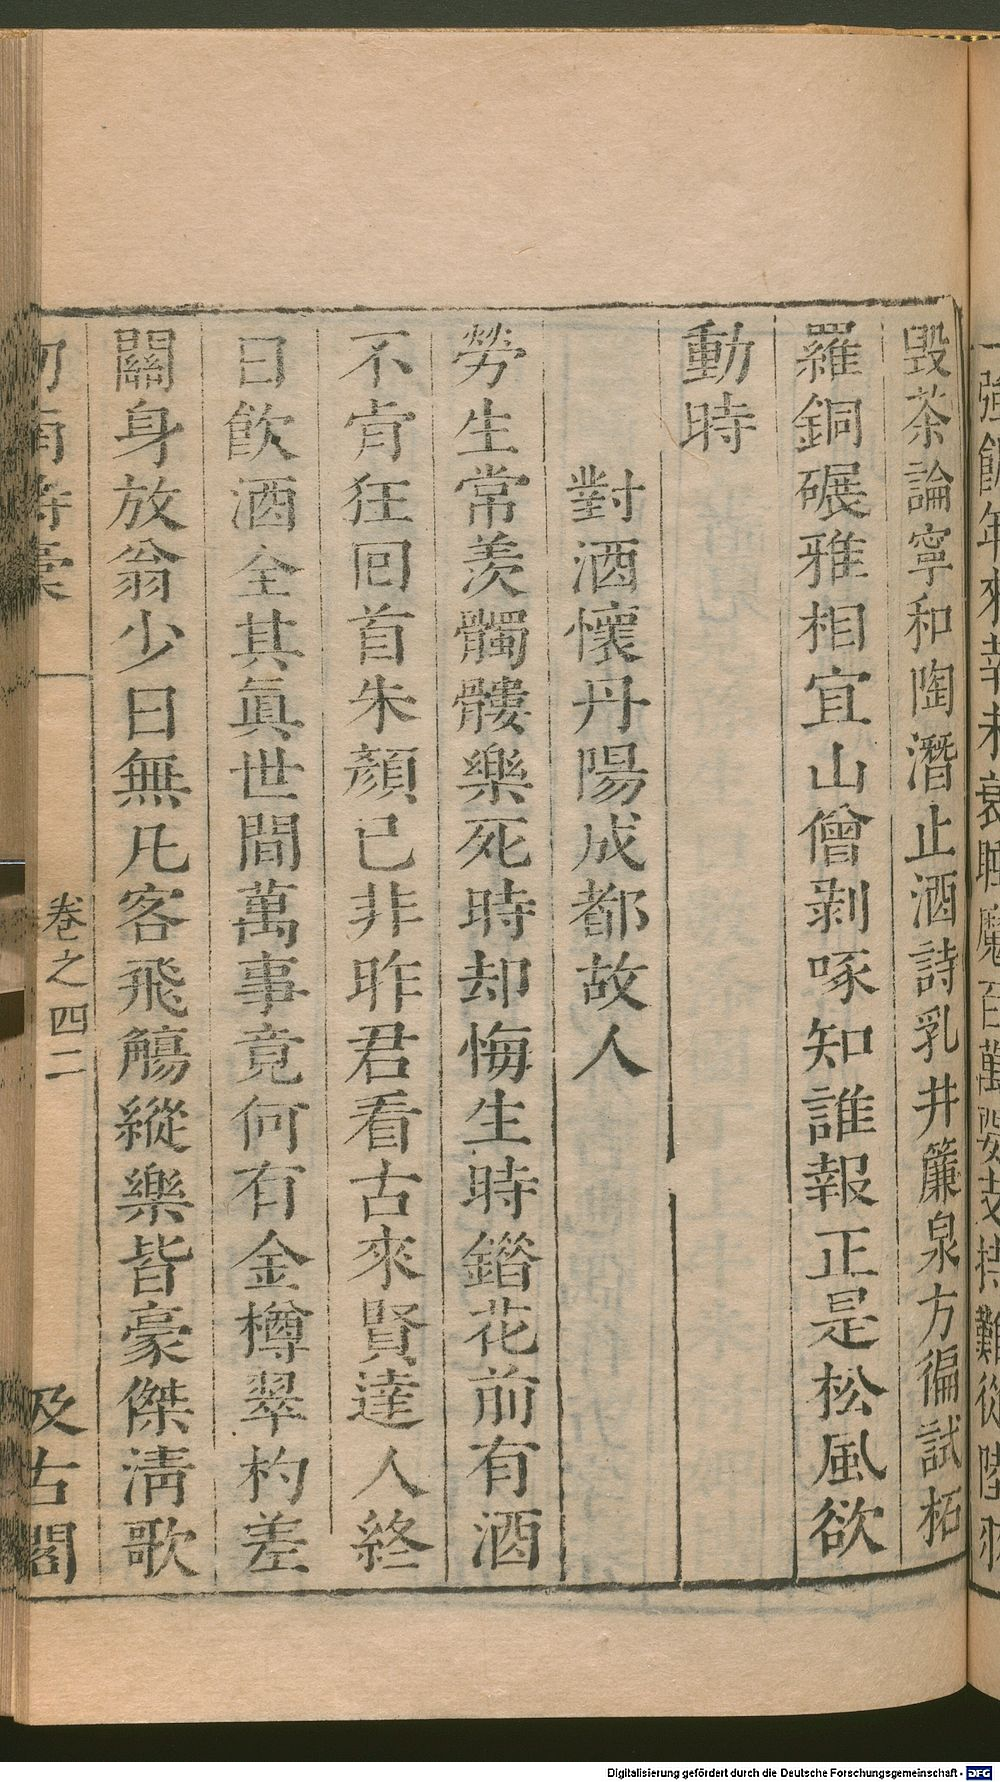 毀茶論寧和陶潛止酒詩乳井簾泉方徧試柘
羅銅碾雅相宜山僧剥啄知誰報正是松風欲
動時
對酒懷丹陽成都故人
勞生常羨髑髏樂死時却悔生時錯花前有酒
不肯狂回首朱顏已非昨君看古來賢達人終
日飲酒全其眞世間萬事竟何有金樽翠杓差
關身放翁少日無凡客飛觴縱樂皆豪傑淸歌
卷之四二
汲古閣
Digitalisierung gefördert durch die Deutsche Forschungsgemeinschaft - DFG